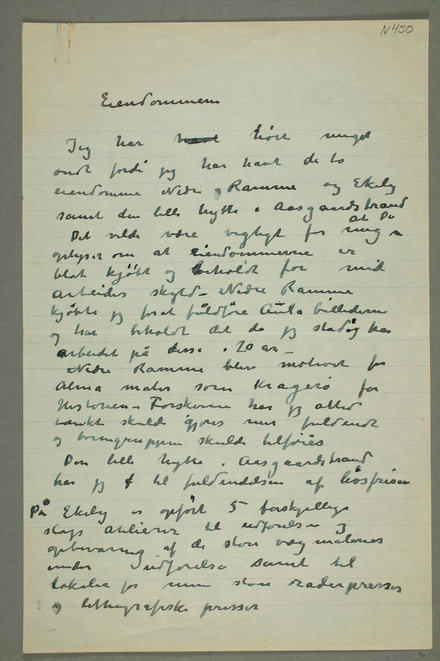 N 450
Eiendommene
Jeg har hørt meget
ondt fordi jeg har havt de to
eiendomme Nedre Ramme og Ekely
samt den lille hytte i Aasgaardstrand
Det vilde være vigtigt for mig at De
oplyser om at eiendommerne er
blot kjøbt og beholdt for mit
arbeides skyld – Nedre Ramme
kjøbte jeg forat fuldføre Aula billederne
og har beholdt det da jeg stadig har
arbeidet på disse i 20 år –
Nedre Ramme blev motivet for
Alma mater som Kragerø for
Historien – Forskerne har jeg altid
tænkt skulde gjøres mer fuldendt
og børnegruppen skulde tilføies
Den lille hytte i Aasgaardstrand
har jeg til fuldendelsen af livsfrisen
På Ekely er opført 5 forskjellige
slags atelierer til udførelse og
opbevaring af de store vægmalerier
under udførelse samt til
lokaler for mine store raderpresser
og lithografiske presser